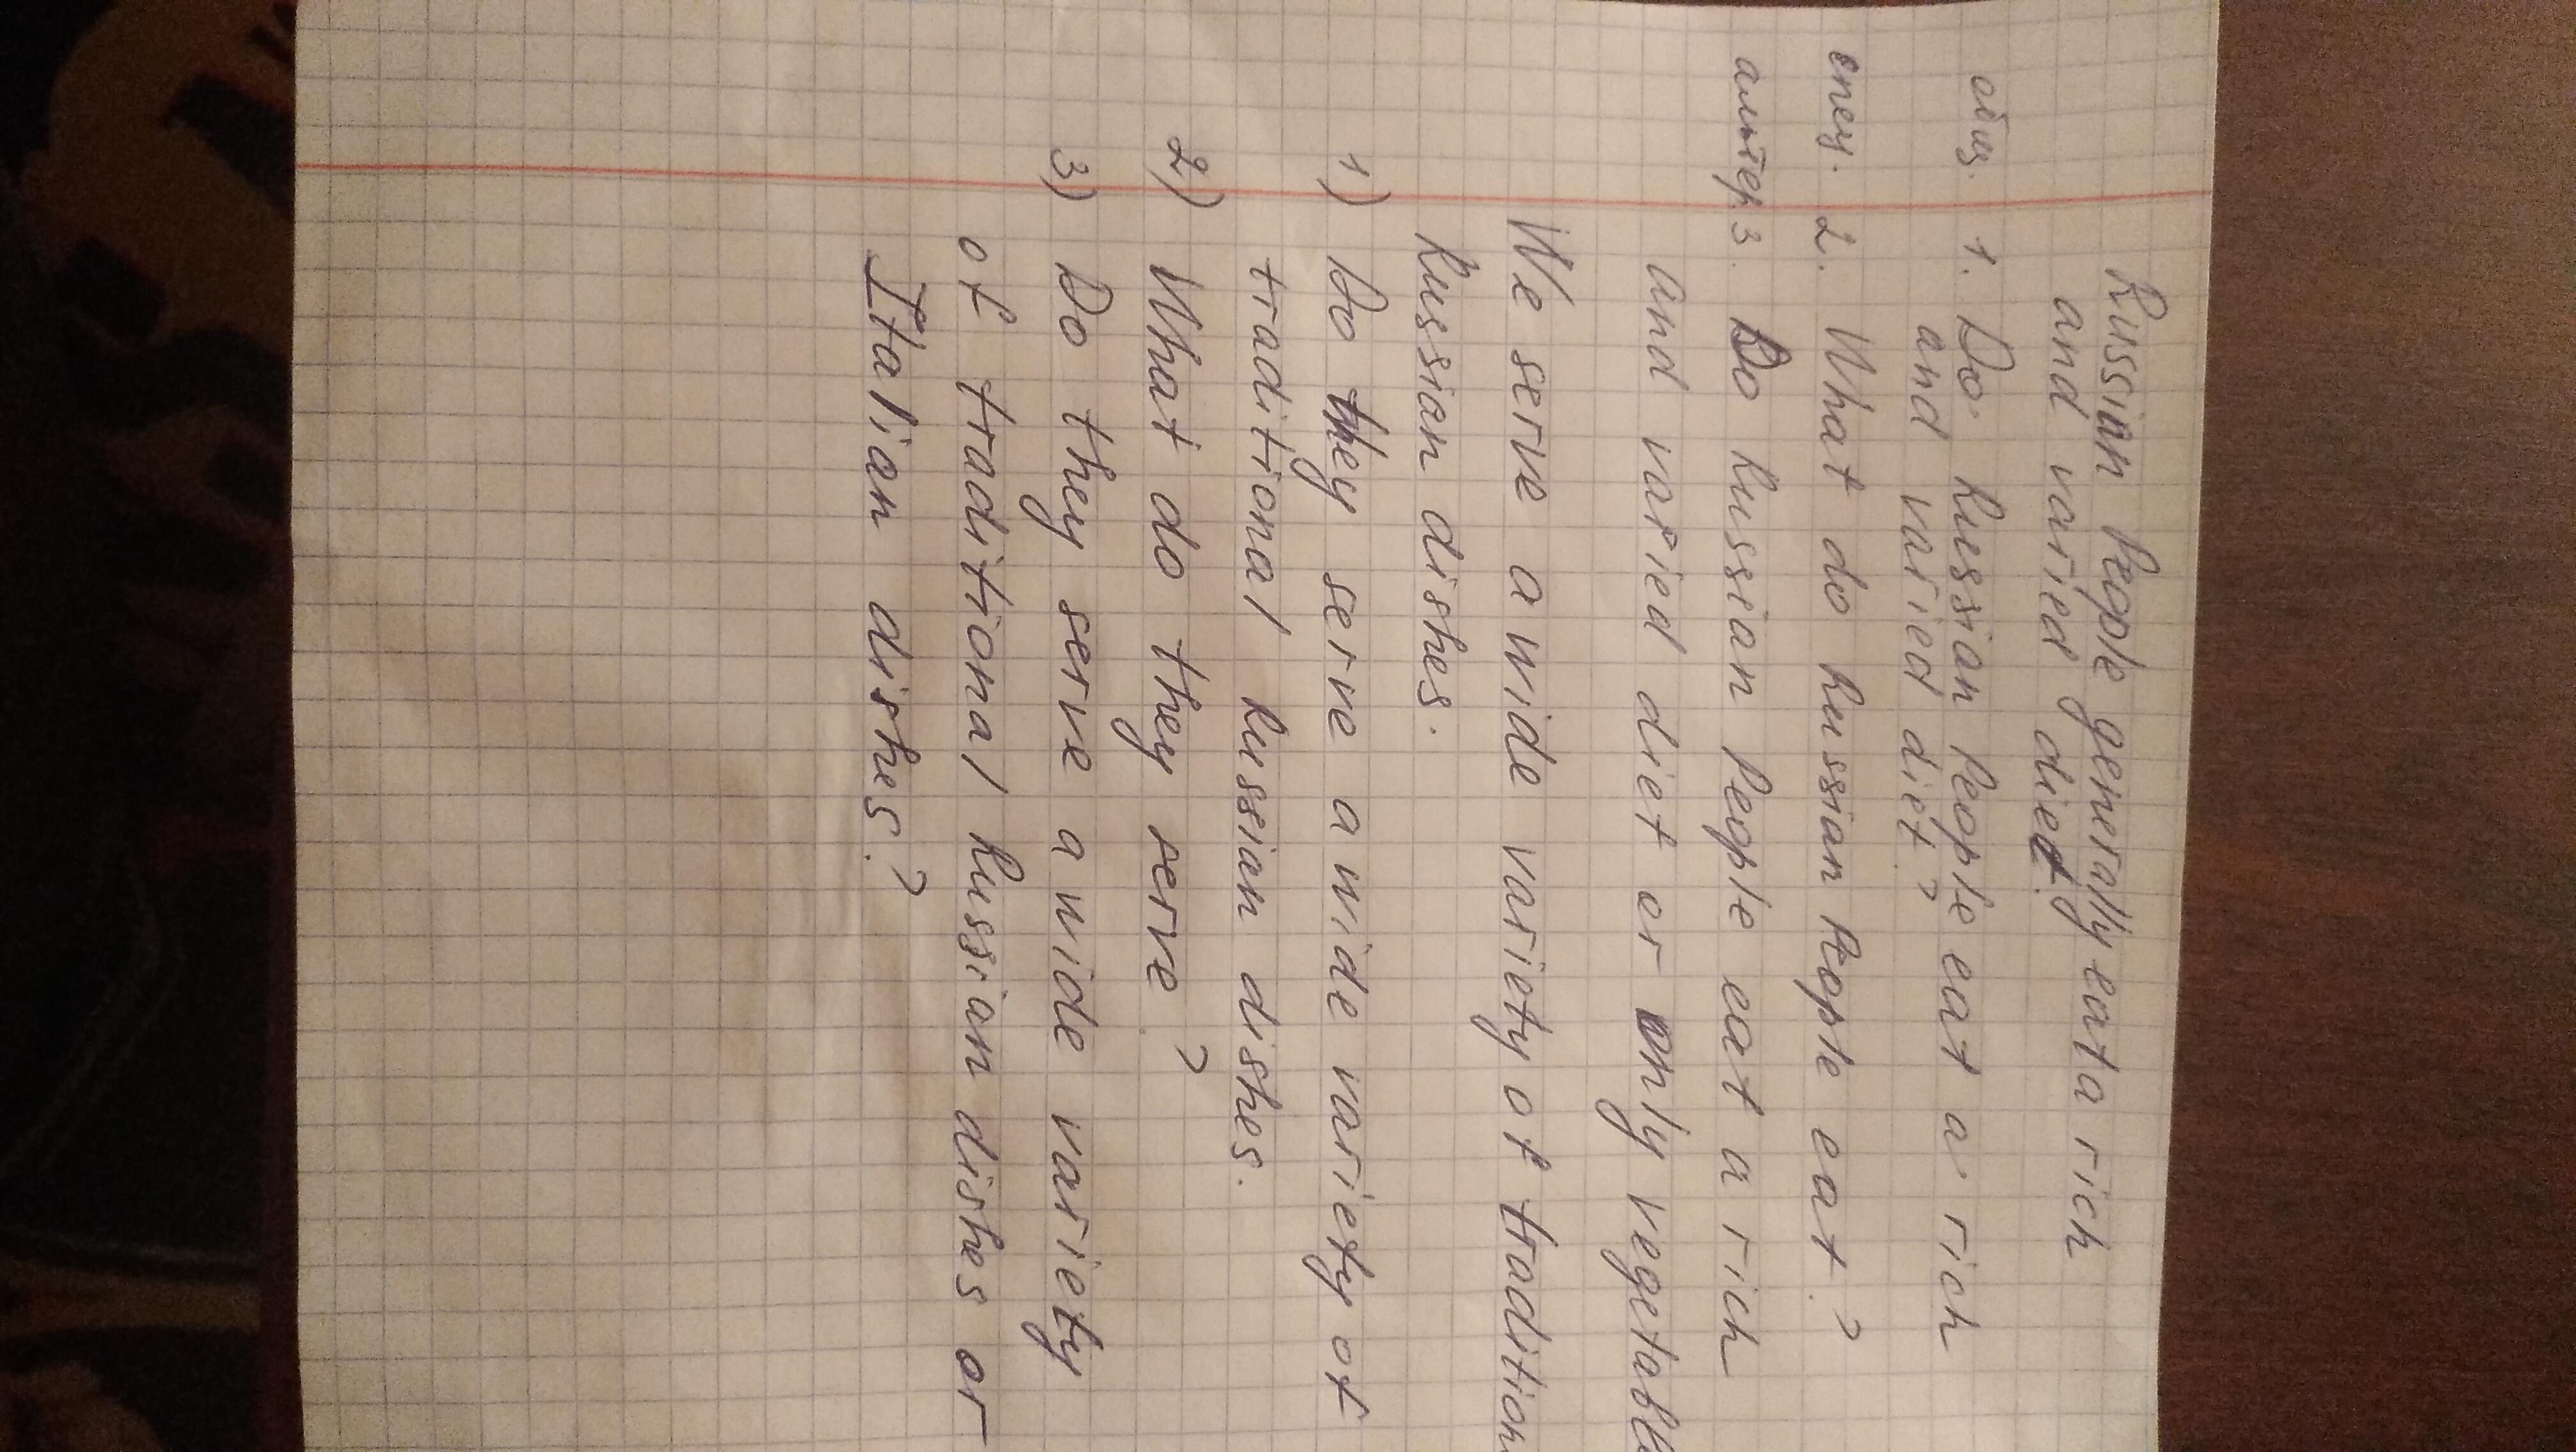 Russian People generally eat a rich
and varied diet.
общ. 1. Do Russian People eat a rich
and varied diet?
спец. 2. What do Russian People eat?
альтер 3. Do Russian People eat a rich
and varied diet or only vegetabl
We serve a wide variety of tradition
Russian dishes.
1) Do they serve a wide variety of
traditional Russian dishes.
2) What do they serve?
3) Do they serve a wide variety
of traditional Russian dishes or
Italian dishes?